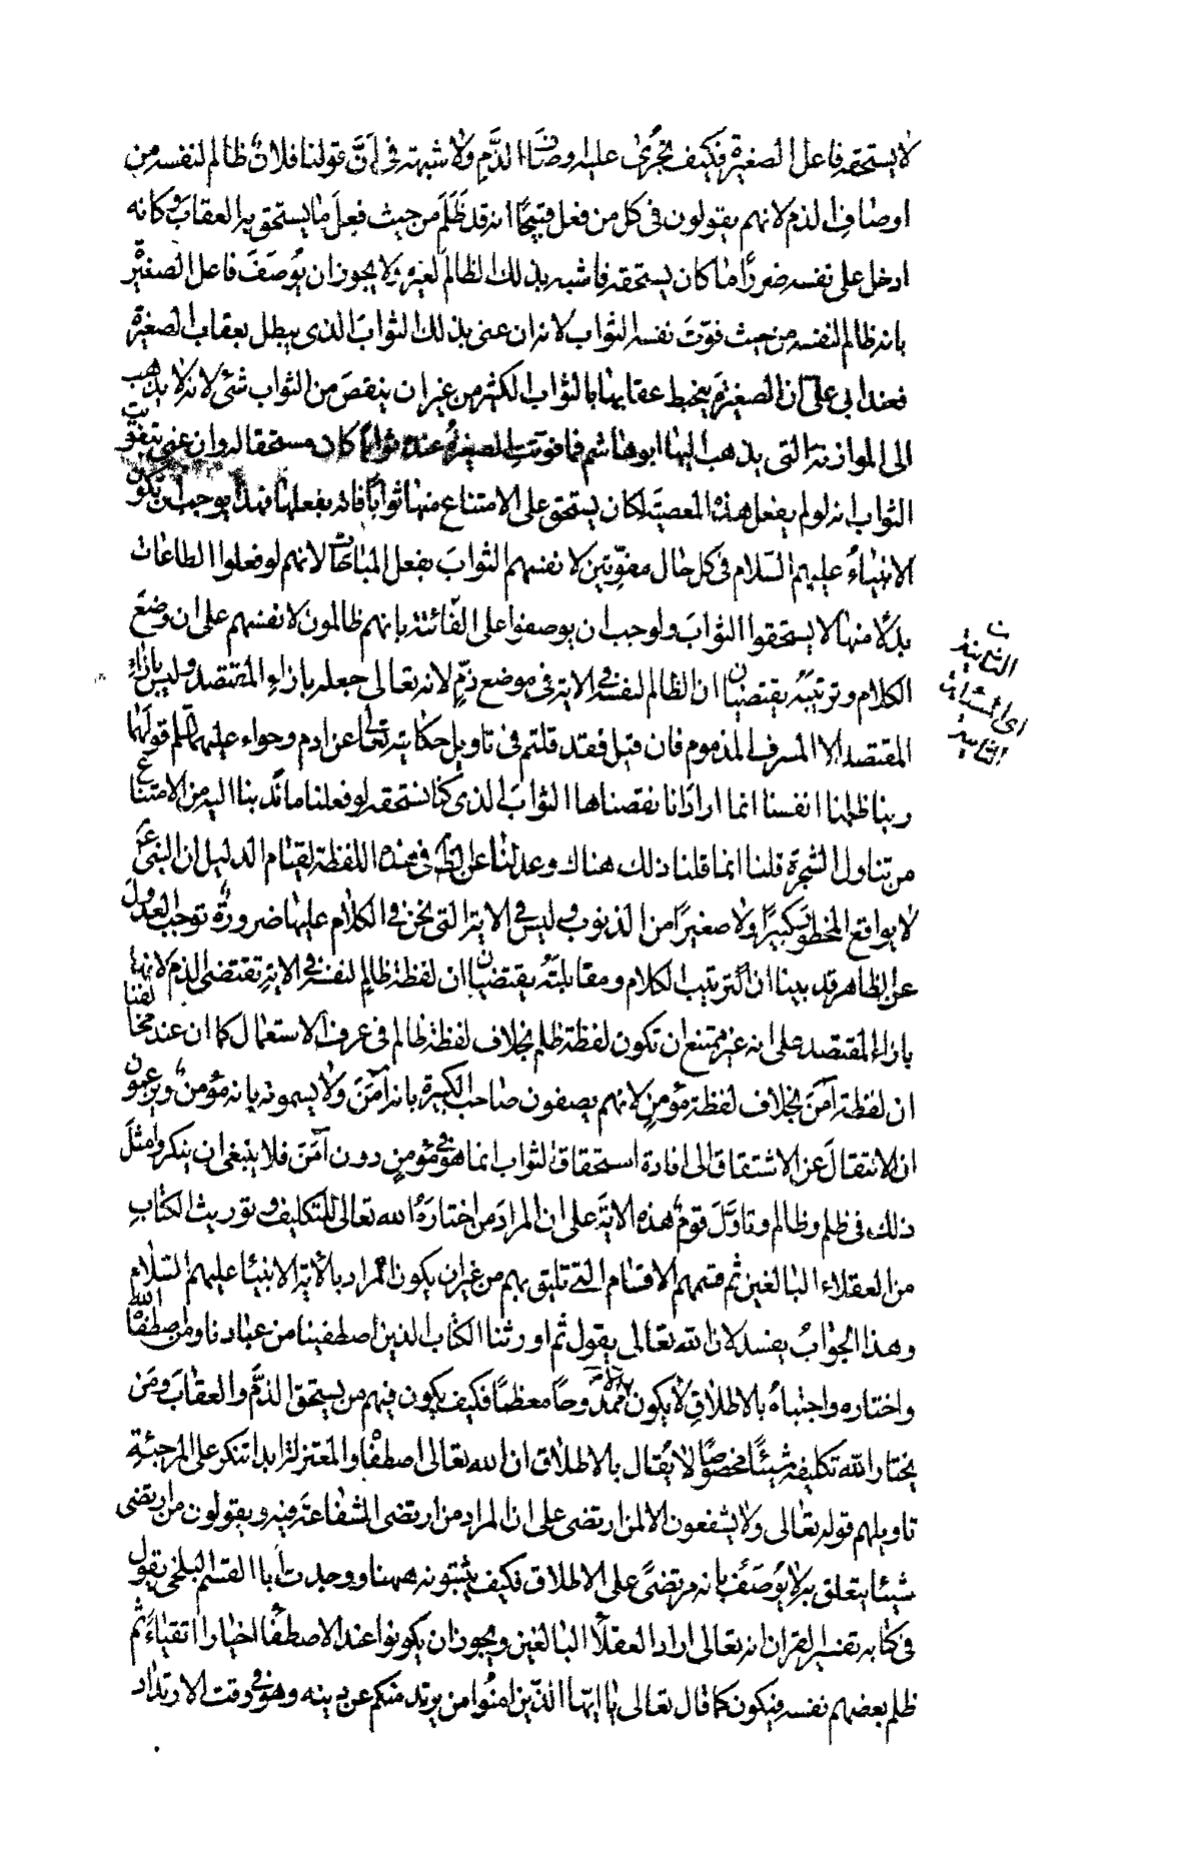 لا يستحقه فاعل الصغيرة فكيف يجرى عليه اوصاف الذم ولا شبهة فى ان قولنا فلان ظالم لنفسه من
اوصاف الذم لانهم يقولون فى كل من فعل قبيحا انه قد ظلم من حيث فعل ما يستحق به العقاب وكانه
ادخل على نفسه ضررا ما كان يستحقه فاشبه بذلك الظالم لغيره ولا يجوز ان يوصف فاعل الصغيرة
بانه ظالم لنفسه من حيث فوت نفسه الثواب لانه ان عنى بذلك الثواب الذى يبطل بعقاب الصغيرة
فعند ابى على ان الصغيرة ينحبط عقابها بالثواب الكثير من غير ان ينقص من الثواب شئ لانه لا يذهب
الى الموازنة التى يذهب اليها ابو هاشم فما فوتت الصغيرة عنده ثوابا كان مستحقا له وان عنى بتفويت
الثواب انه لو لم يفعل هذه المعصية لكان يستحق على الامتناع منها ثوابا فاته بفعلها فهذا يوجب ان تكون
الانبياء عليهم السلام فى كل حال مفوتين لانفسهم الثواب بفعل المباحات لانهم لو فعلوا الطاعات
بدلا منها لاستحقوا الثواب ولوجب ان يوصفوا على الفائتة بانهم ظالمون لانفسهم على ان وضع
الكلام وترتيبه يقتضيان ان الظالم لنفسه فى الاية فى موضع ذم لانه تعالى جعله بازاء المقتصد وليس بازاء
المقتصد الا المسرف المذموم فان قيل فقد قلتم فى تاويل حكايته تعالى عن ادم وحواء عليهما السلم قولهما
ربنا ظلمنا انفسنا انما ارادا انا نقصناها الثواب الذى كنا نستحقه لو فعلنا ما ندبنا اليه من الامتناع
من تناول الشجرة قلنا انما قلنا ذلك هناك وعدلنا عن الظاهر فى هذه اللفظة لقيام الدليل ان النبى ع
لا يواقع المحظور كبيرا ولا صغيرا من الذنوب وليس فى الاية التى نحن فى الكلام عليها ضرورة توجب العدول
عن الظاهر قد بينا ان ترتيب الكلام ومقابلته يقتضيان ان لفظة ظالم لنفسه فى الاية تقتضى الذم لانها
بازاء المقتصد على انه غير ممتنع ان تكون لفظة ظلم بخلاف لفظة ظالم فى عرف الاستعمال كما ان عند مخالفينا
ان لفظة آمن بخلاف لفظة مؤمن لانهم يصفون صاحب الكبيرة بانه آمن ولا يسمونه بانه مؤمن ويزعمون
ان الانتقال عن الاشتقاق الى افادة استحقاق الثواب انما هو فى مؤمن دون آمن فلا ينبغى ان ينكروا مثل
ذلك فى ظلم وظالم وتاول قوم هذه الاية على ان المراد من اختاره الله تعالى للتكليف وتوريث الكتاب
من العقلاء البالغين ثم قسمهم الاقسام التى تليق بهم من غير ان يكون المراد بالاية الانبياء عليهم السلام
وهذا الجواب يفسد لان الله تعالى يقول ثم اورثنا الكتاب الذين اصطفينا من عبادنا ومن اصطفاه الله
واختاره واجتباه بالاطلاق لا يكون الا ممدوحا معظما فكيف يكون فيهم من يستحق الذم والعقاب ومن
يختار الله تكليفه شيئا مخصوصا لا يقال بالاطلاق ان الله تعالى اصطفاه والمعتزلة ابدا تنكر على المرجئة
تاويلهم قوله تعالى ولا يشفعون الا لمن ارتضى على ان المراد من ارتضى الشفاعة فيه ويقولون من ارتضى
شيئا يتعلق به لا يوصف بانه مرتضى على الاطلاق فكيف يثبتونه ههنا ووجدت ابا القسم البلخى يقول
فى كتابه تفسير القران انه تعالى اراد العقلاء البالغين ويجوز ان يكونوا عند الاصطفاء اخيارا اتقياء ثم
ظلم بعضهم نفسه فيكون كما قال تعالى يا ايها الذين امنوا من يرتد منكم عن دينه وهو فى وقت الارتداد